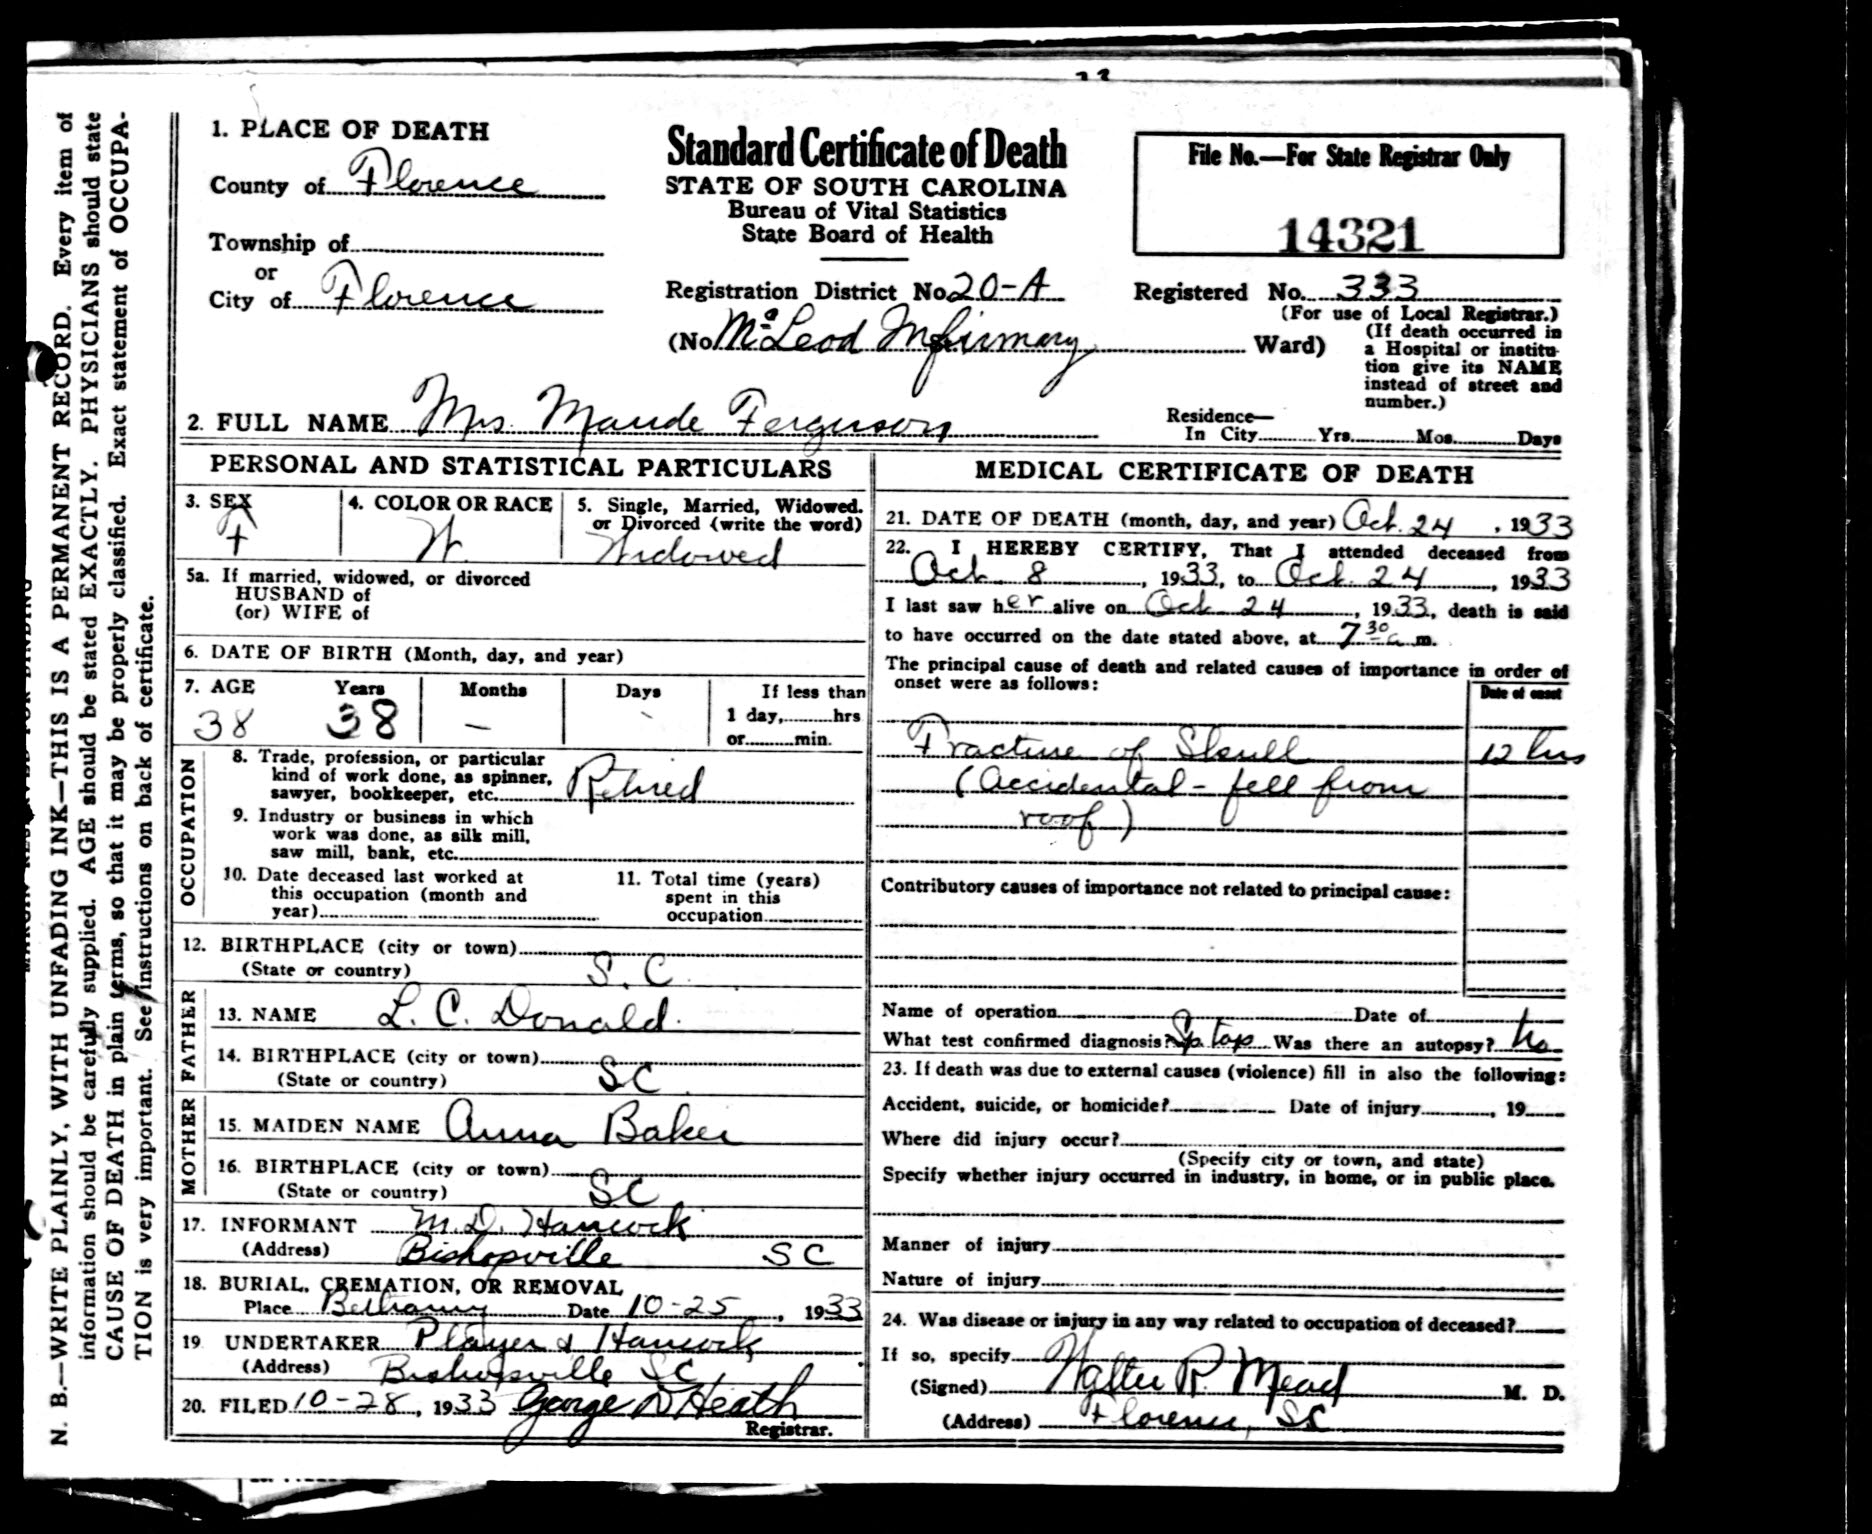 1. PLACE OF DEATH
County of Florence
Township of
or
City of Florence
Standard Certificate of Death
STATE OF SOUTH CAROLINA
Bureau of Vital Statistics
State Board of Health
File No.—For State Registrar Only
14321
Registration District No. 20-A
Registered No. 333
(For use of Local Registrar.)
(No. McLeod Infirmary Ward)
(If death occurred in
a Hospital or institu-
tion give its NAME
instead of street and
number.)
2. FULL NAME Mrs. Maude Ferguson
Residence—
In City Yrs. Mos. Days
PERSONAL AND STATISTICAL PARTICULARS
3. SEX
F
4. COLOR OR RACE
W.
5. Single, Married, Widowed.
or Divorced (write the word)
Widowed
5a. If married, widowed, or divorced
HUSBAND of
(or) WIFE of
6. DATE OF BIRTH (Month, day, and year)
7. AGE Years Months Days If less than
1 day, hrs
or min.
38 38 —
OCCUPATION
8. Trade, profession, or particular
kind of work done, as spinner,
sawyer, bookkeeper, etc. Retired
9. Industry or business in which
work was done, as silk mill,
saw mill, bank, etc.
10. Date deceased last worked at
this occupation (month and
year)
11. Total time (years)
spent in this
occupation
12. BIRTHPLACE (city or town)
(State or country) S. C.
FATHER
13. NAME L. C. Donald.
14. BIRTHPLACE (city or town)
(State or country) SC
MOTHER
15. MAIDEN NAME Anna Baker
16. BIRTHPLACE (city or town)
(State or country) SC
17. INFORMANT M.D. Hancock
(Address) Bishopville SC
18. BURIAL, CREMATION, OR REMOVAL
Place Bethany Date 10-25, 1933
19 UNDERTAKER Player & Hancock
(Address) Bishopville SC
20. FILED 10-28, 1933 George D Heath
Registrar.
MEDICAL CERTIFICATE OF DEATH
21. DATE OF DEATH (month, day, and year) Oct. 24, 1933
22. I HEREBY CERTIFY, That I attended deceased from
Oct 8, 1933, to Oct. 24, 1933
I last saw her alive on Oct 24, 1933, death is said
to have occurred on the date stated above, at 7 30 a m.
The principal cause of death and related causes of importance in order of
onset were as follows:
Date of onset
Fracture of Skull 12 hrs
(Accidental - fell from
roof)
Contributory causes of importance not related to principal cause:
Name of operation Date of
What test confirmed diagnosis? Sp tap Was there an autopsy? No
23. If death was due to external causes (violence) fill in also the following:
Accident, suicide, or homicide? Date of injury, 19
Where did injury occur?
(Specify city or town, and state)
Specify whether injury occurred in industry, in home, or in public place.
Manner of injury
Nature of injury
24. Was disease or injury in any way related to occupation of deceased?
If so, specify
(Signed) Walter R. Mead M. D.
(Address) Florence, SC
N. B.—WRITE PLAINLY, WITH UNFADING INK—THIS IS A PERMANENT RECORD. Every item of
information should be carefully supplied. AGE should be stated EXACTLY. PHYSICIANS should state
CAUSE OF DEATH in plain terms, so that it may be properly classified. Exact statement of OCCUPA-
TION is very important. See instructions on back of certificate.